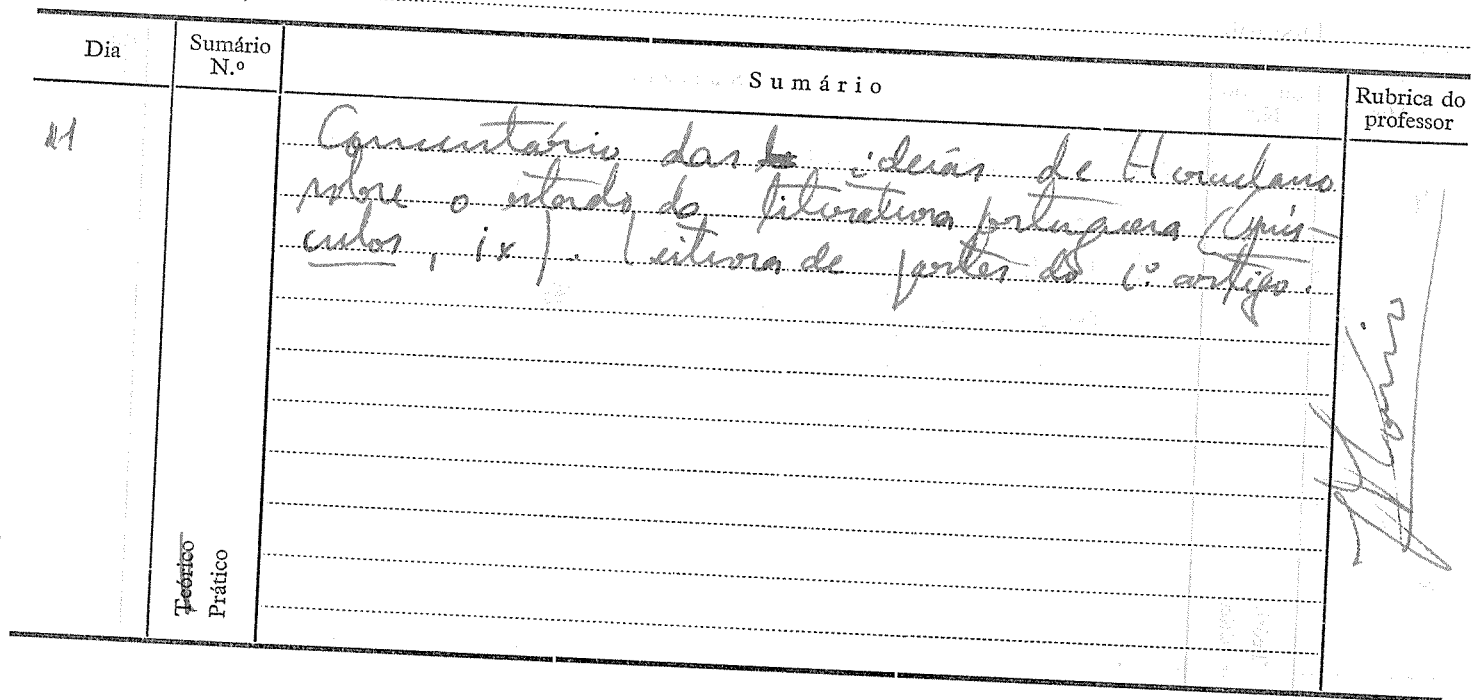 Dia
Sumário
N.º
Sumário
Rubrica do
professor
Comentário das ideias de Herculano
sobre o estado da literatura portuguesa (Opús-
culos, ix). Leitura de partes do 1.º artigo.
Teórico
Prático